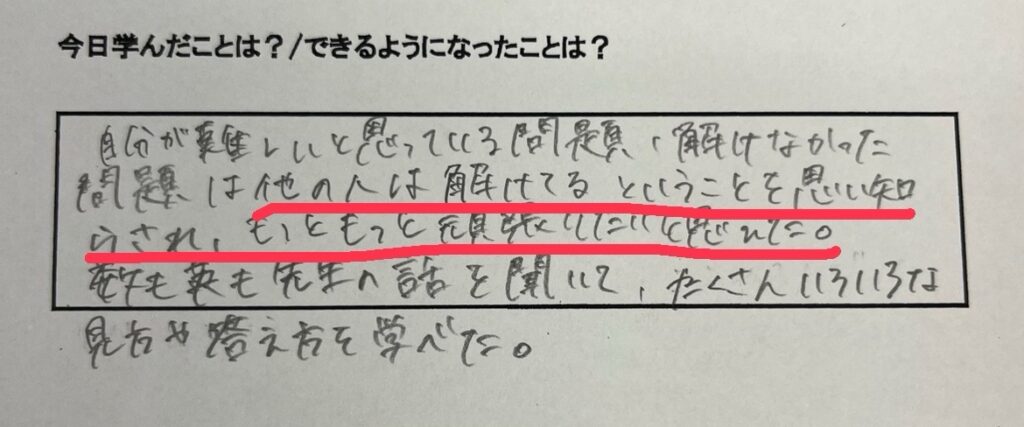 今日学んだことは？/できるようになったことは？
自分が難しいと思っている問題、解けなかった
問題は他の人は解けてるということを思い知
らされ、もっともっと頑張りたいと思えた。
数も英も先生の話を聞いて、たくさんいろいろな
見方や答え方を学べた。